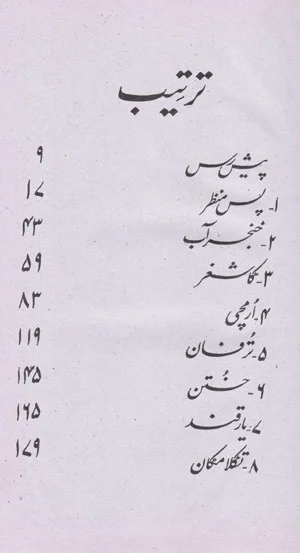 ترتیب
پیش رس ۹
۱۔ پس منظر ۱۷
۲۔ خنجر آب ۴۳
۳۔ کاشغر ۵۹
۴۔ اُرمچی ۸۳
۵۔ تُرفان ۱۱۹
۶۔ خُتن ۱۴۵
۷۔ یارقند ۱۶۵
۸۔ تکلا مکان ۱۷۹